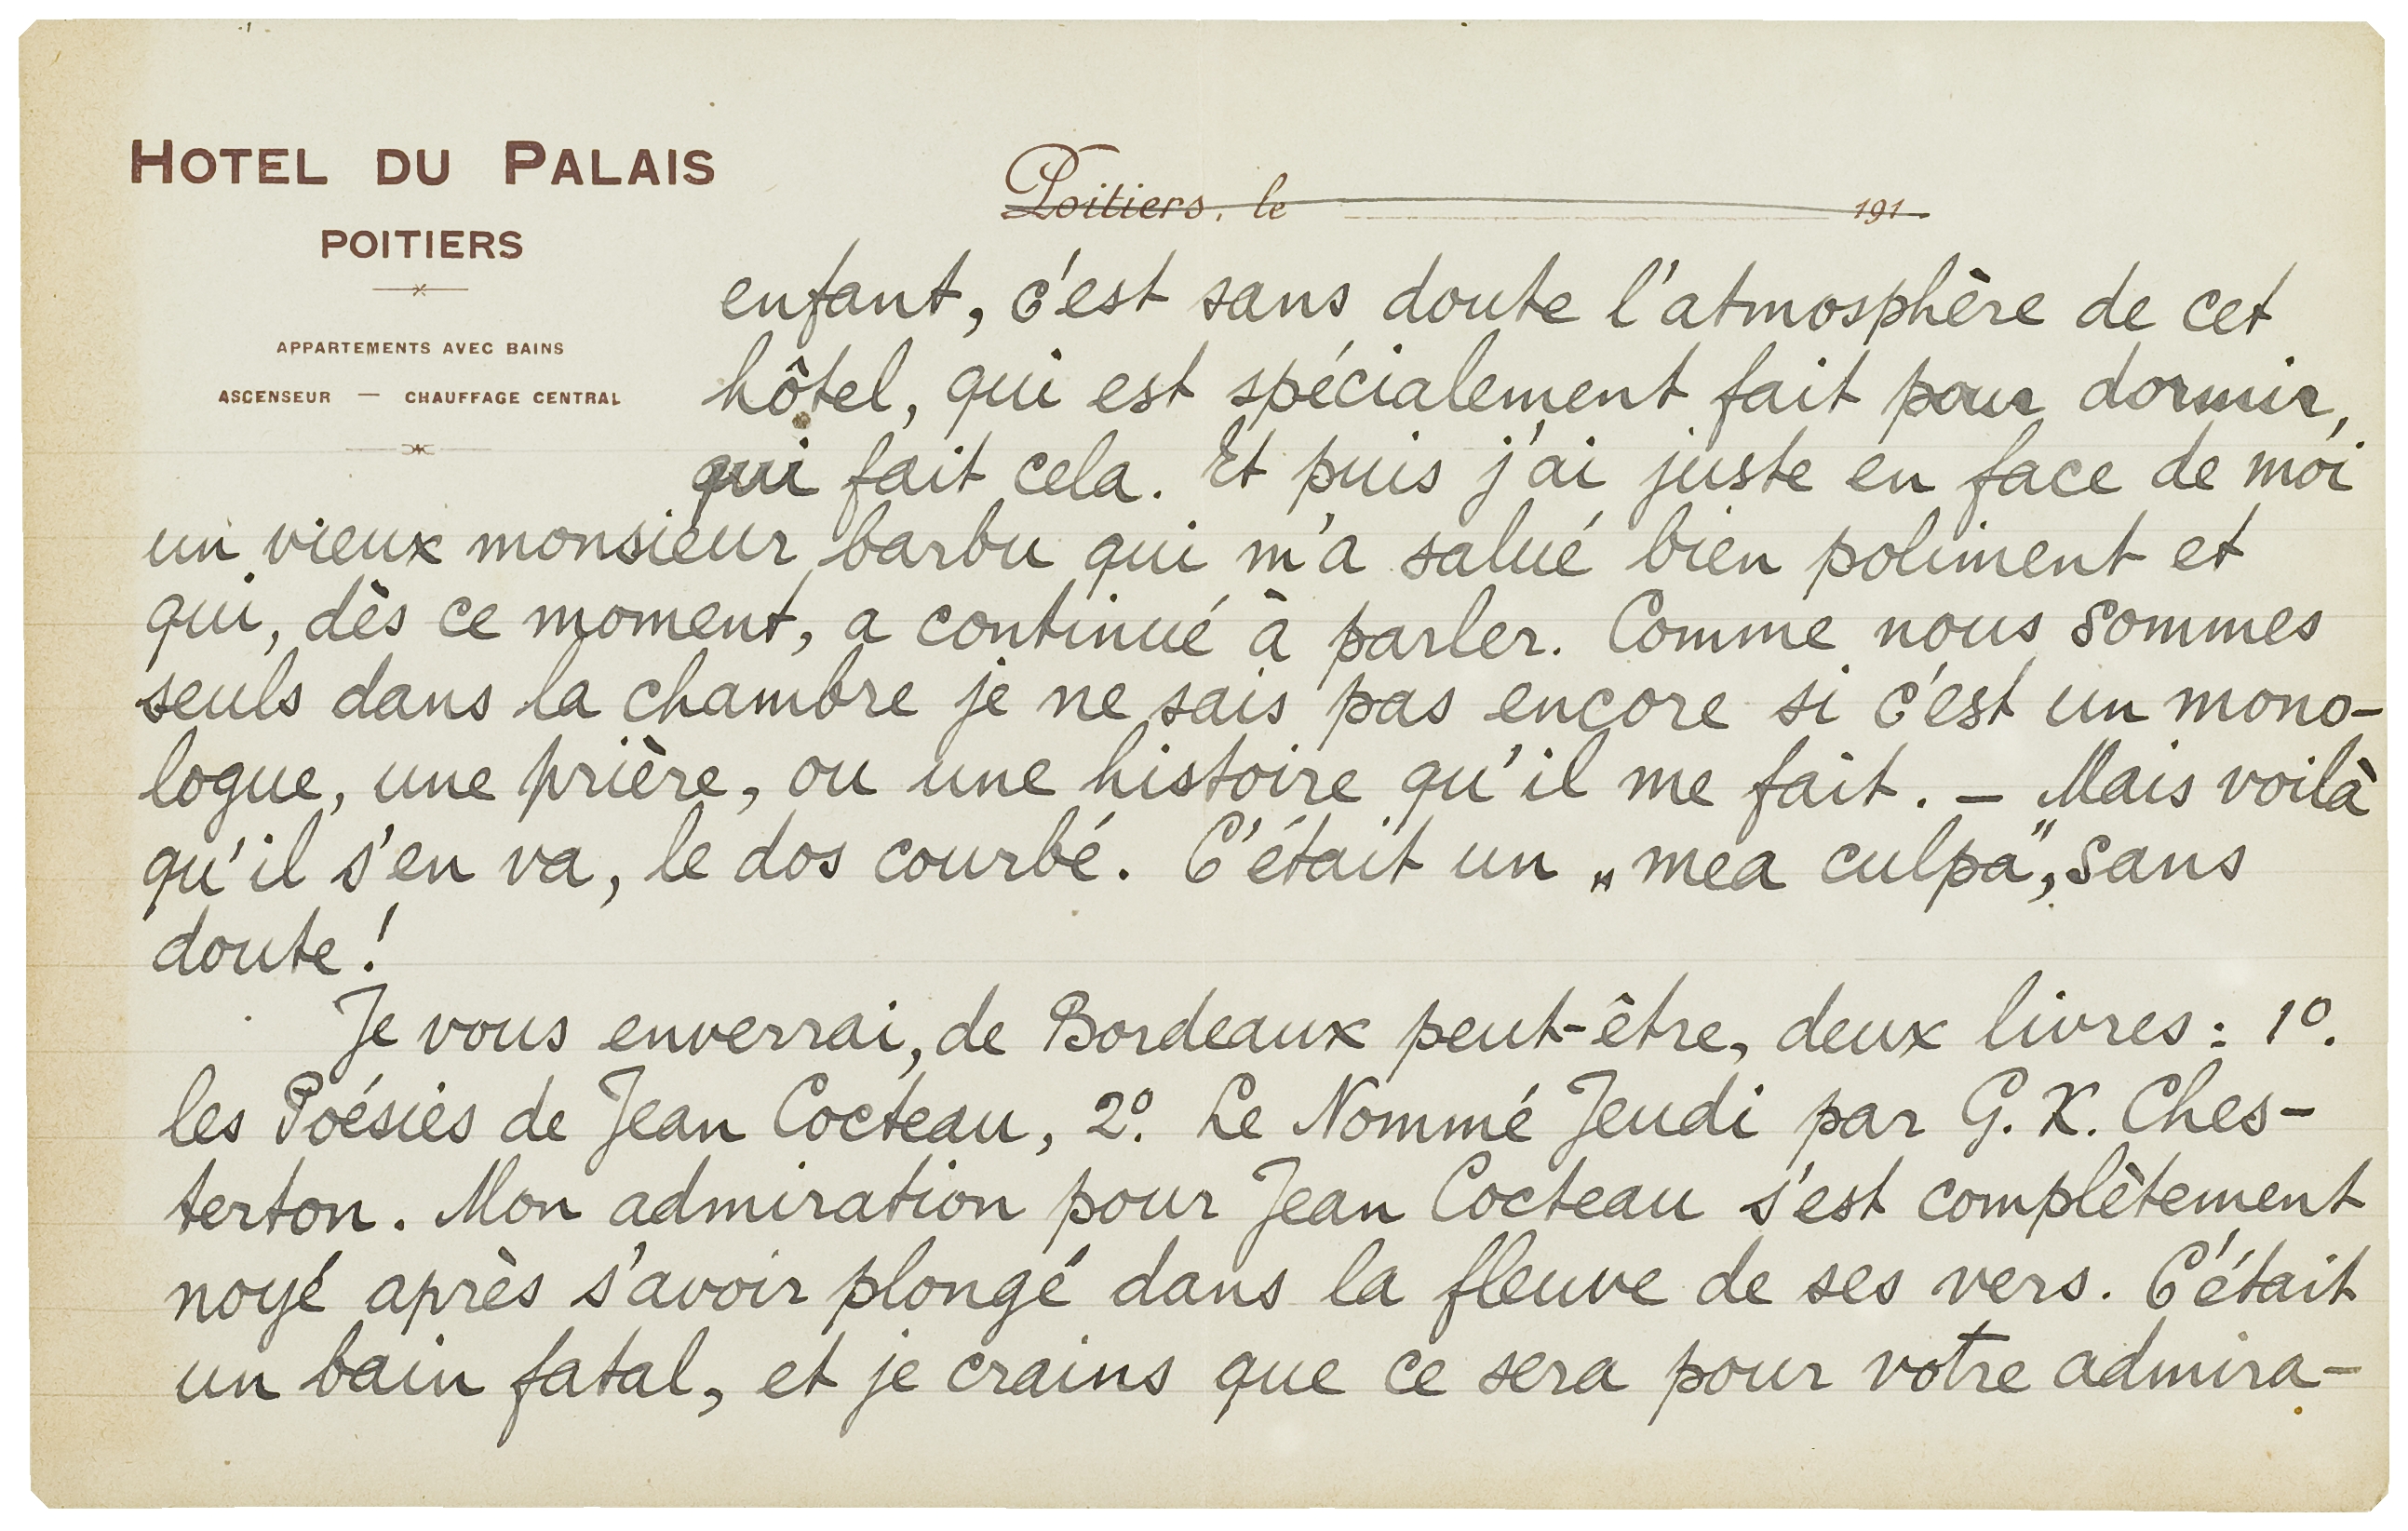 HOTEL DU PALAIS
POITIERS
APPARTEMENTS AVEC BAINS
ASCENSEUR — CHAUFFAGE CENTRAL
Poitiers, le 191
enfant, c'est sans doute l'atmosphère de cet
hôtel, qui est spécialement fait pour dormir,
qui fait cela. Et puis j'ai juste en face de moi
un vieux monsieur barbu qui m'a salué bien poliment et
qui, dès ce moment, a continué à parler. Comme nous sommes
seuls dans la chambre je ne sais pas encore si c'est un mono-
logue, une prière, ou une histoire qu'il me fait. — Mais voilà
qu'il s'en va, le dos courbé. C'était un „mea culpa”, sans
doute!
Je vous enverrai, de Bordeaux peut-être, deux livres: 1º.
les Poésies de Jean Cocteau, 2º. Le Nommé Jeudi par G. K. Ches-
terton. Mon admiration pour Jean Cocteau s'est complètement
noyé après s'avoir plongé dans la fleuve de ses vers. C'était
un bain fatal, et je crains que ce sera pour votre admira-